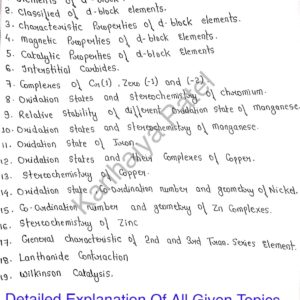 Elements of d-block elements.
2. Classified of d-block elements.
3. Characteristic Properties of d-block elements.
4. Magnetic Properties of d-block elements.
5. Catalytic Properties of d-block Elements
6. Interstitial Carbides.
7. Complexes of Cr(1), Zero, (-1) and (-2)
8. Oxidation states and stereochemistry of chromium.
9. Relative Stability of different Oxidation state of manganese
10. Oxidation states and stereochemistry of manganese.
11. Oxidation State of Iron
12. Oxidation States and their Complexes of Copper.
13. Stereochemistry of Copper.
14. Oxidation state, Co-ordination number and geometry of Nickel.
15. Co-Ordination number and geometry of Zn Complexes.
16. Stereochemistry of Zinc
17. General characteristic of 2nd and 3rd Tran. Series Element.
18. Lanthanide Contraction
19. Wilkinson Catalysis.
Kanhaiya Patel
Detailed Explanation Of All Given Topics